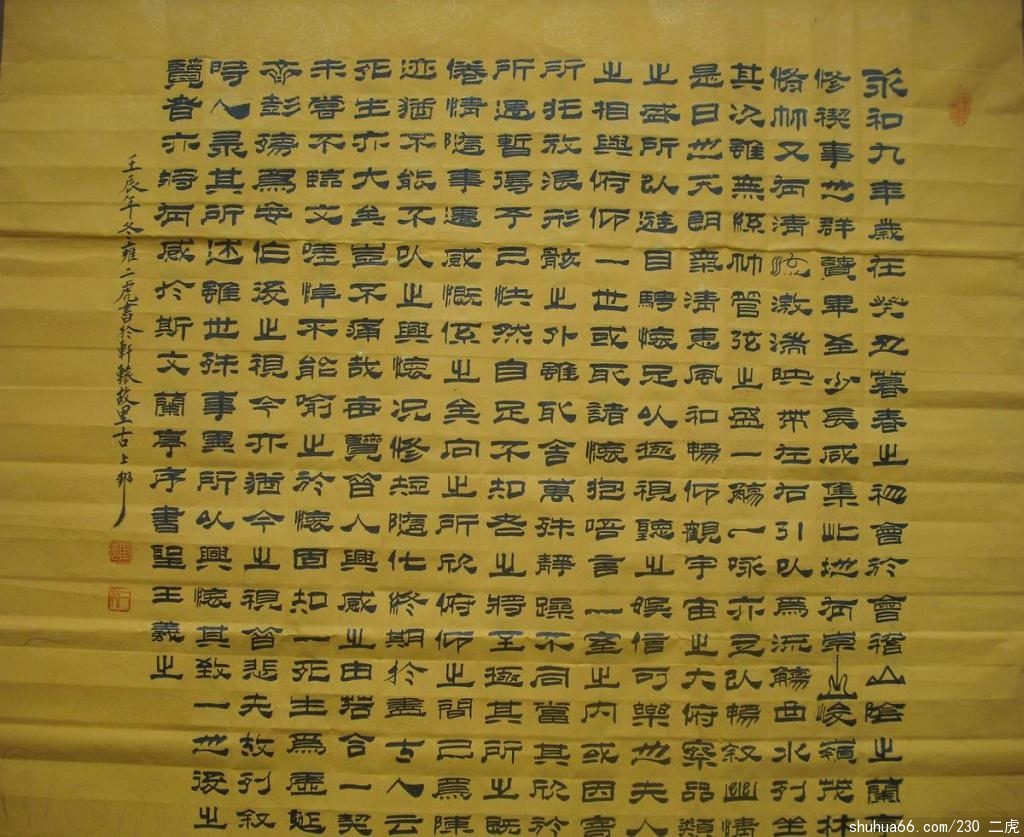 永和九年歲在癸丑暮春之初會於會稽山陰之蘭
修禊事也群賢畢至少長咸集此地有崇山峻嶺茂林
脩竹又有清流激湍映帶左右引以為流觴曲水列坐
其次雖無絲竹管弦之盛一觴一詠亦足以暢敘幽情
是日也天朗氣清惠風和暢仰觀宇宙之大俯察品類
之盛所以遊目騁懷足以極視聽之娛信可樂也夫人
之相與俯仰一世或取諸懷抱晤言一室之內或因寄
所托放浪形骸之外雖取舍萬殊靜躁不同當其欣於
所遇暫得於己快然自足不知老之將至極其所之既
倦情隨事遷感慨係之矣向之所欣俯仰之間已為陳
迹猶不能不以之興懷況修短隨化終期於盡古人云
死生亦大矣豈不痛哉每覽昔人興感之由若合一契
未嘗不臨文嗟悼不能喻之於懷固知一死生為虛誕
齊彭殤為妄作後之視今亦猶今之視昔悲夫故列敘
時人录其所述雖世殊事異所以興懷其致一也後之
覽者亦將有感於斯文蘭亭序書聖王羲之
壬辰年冬雍二虎書於軒轅故里古上邽
shuhua66.com/230 二虎